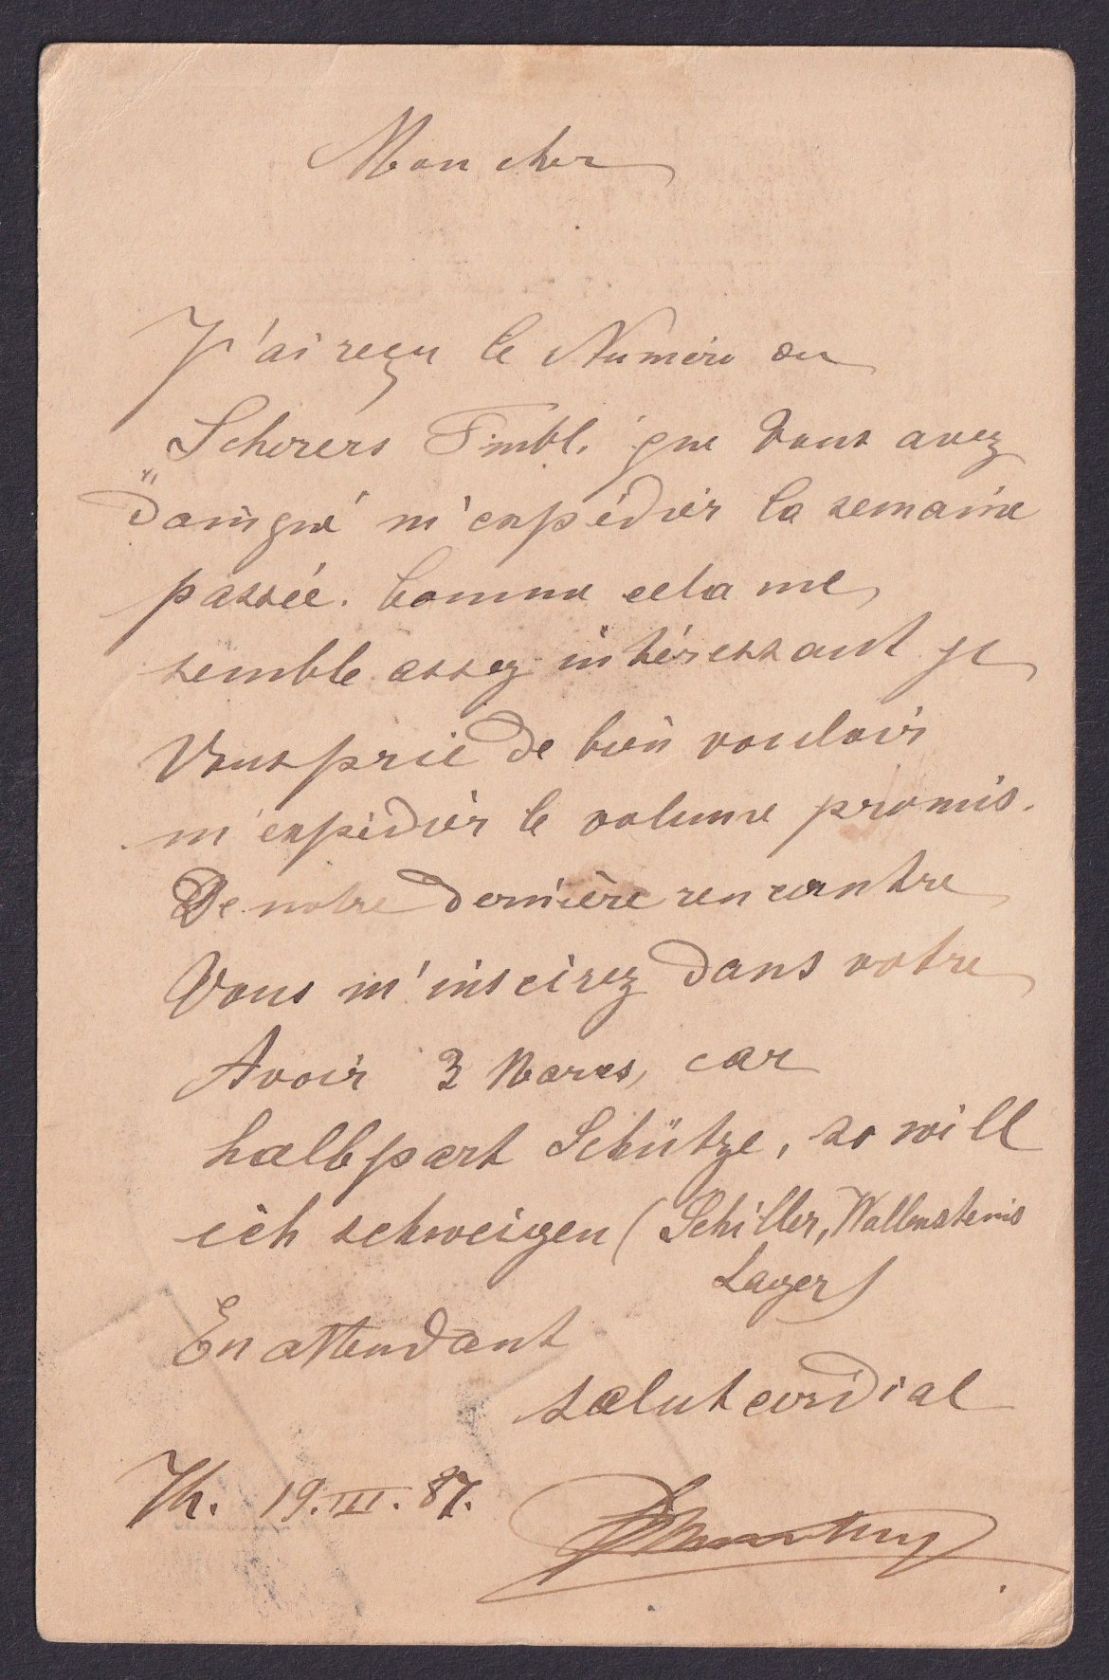 Mon cher
J'ai reçu le Numéro du
Scherers Fmbl. que Vous avez
"daingné m'expédier la semaine
passée. Comme cela me
semble assez intéressant je
Vous prie de bien vouloir
m'expédier le volume promis.
De notre dernière rencontre
Vous m'inscirez dans votre
Avoir 3 Marcs, car
halbpart Schütze, so will
ich schweigen (Schiller, Wallensteins
Lager)
En attendant
salut cordial
Th. 19.III.87.